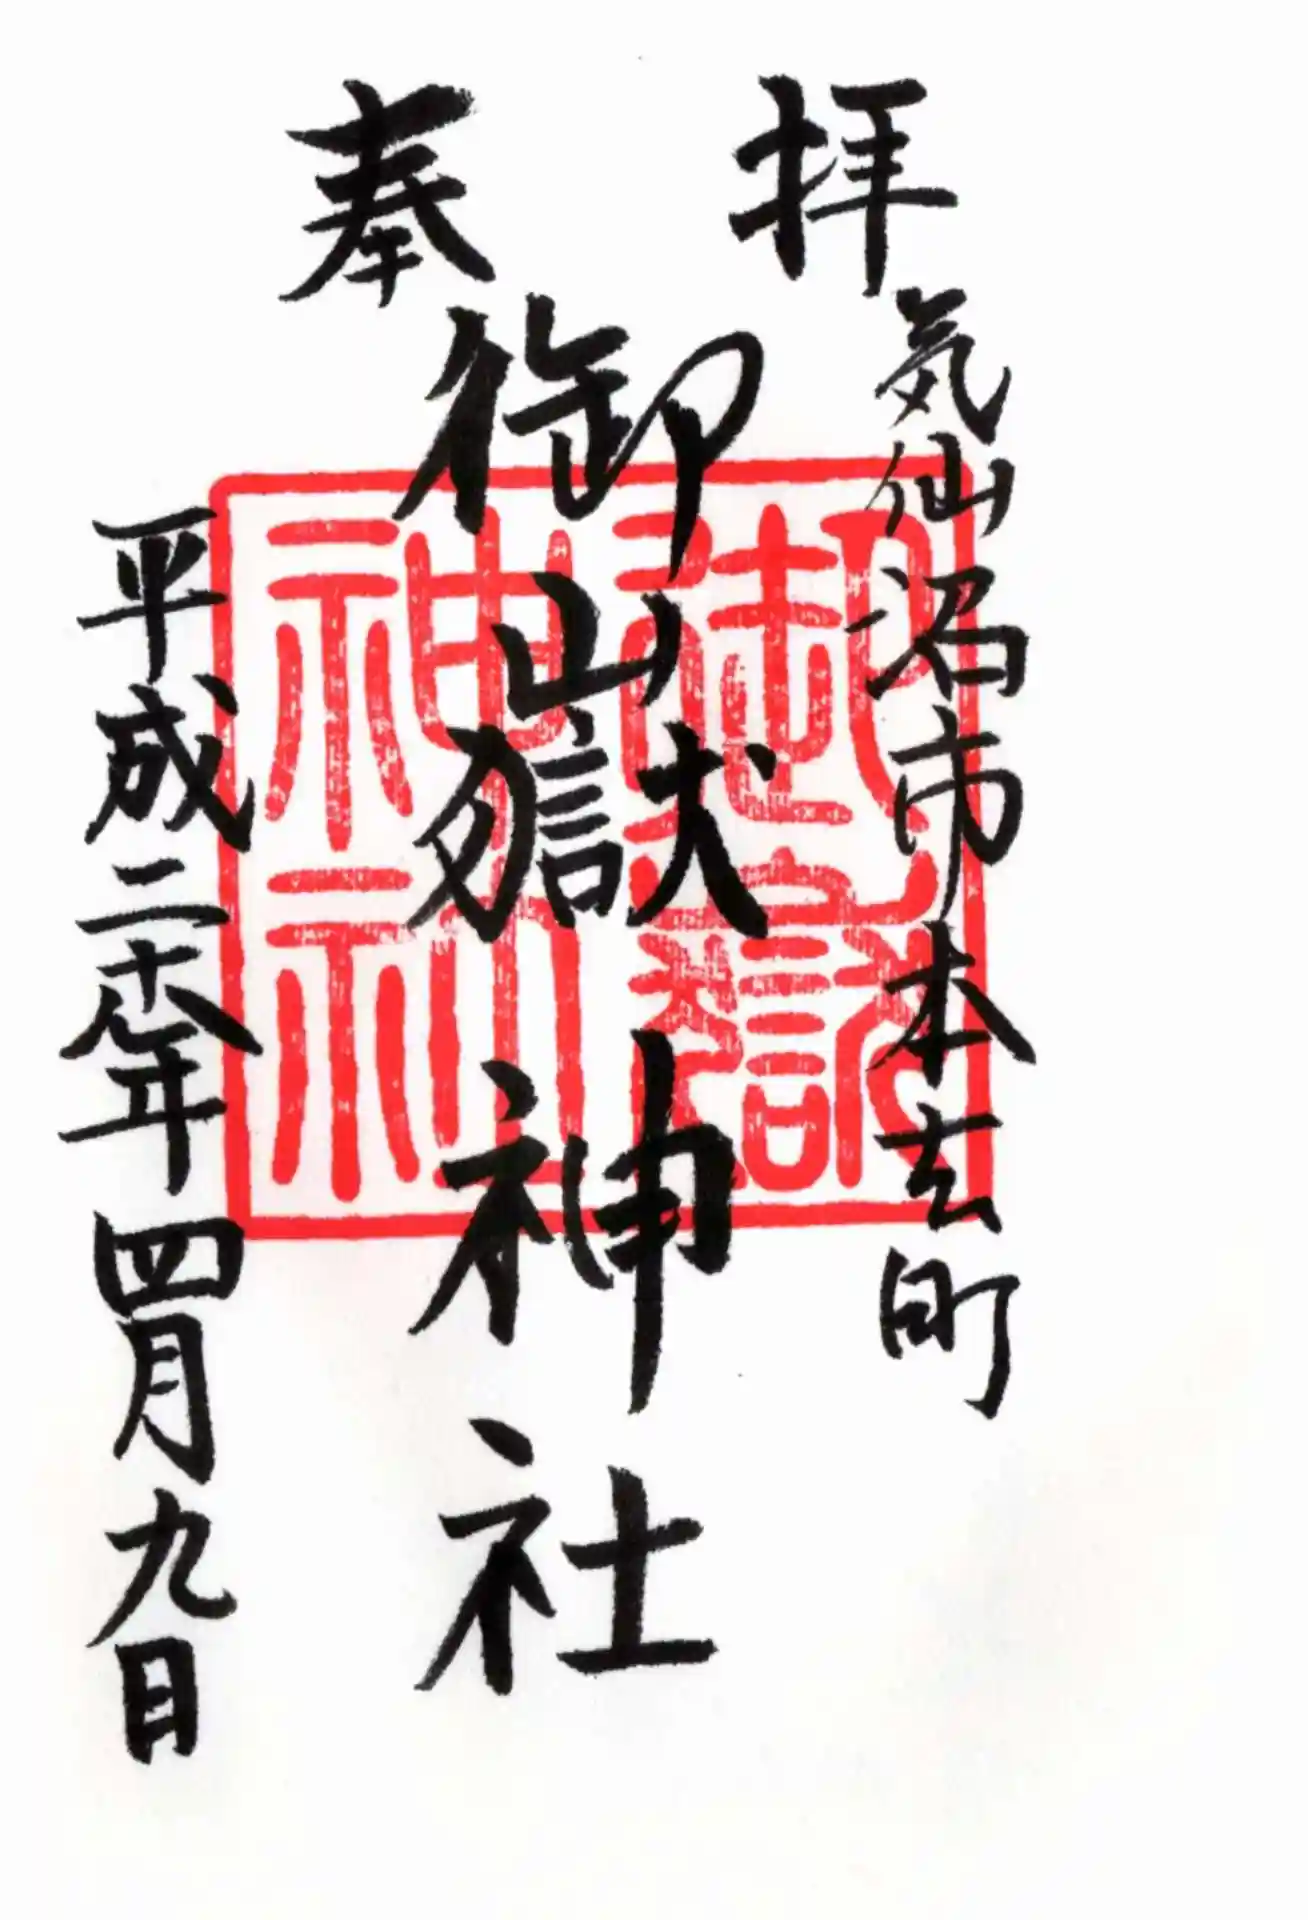 奉拝
気仙沼市本吉町
御嶽神社
平成二十六年四月九日
御嶽神社